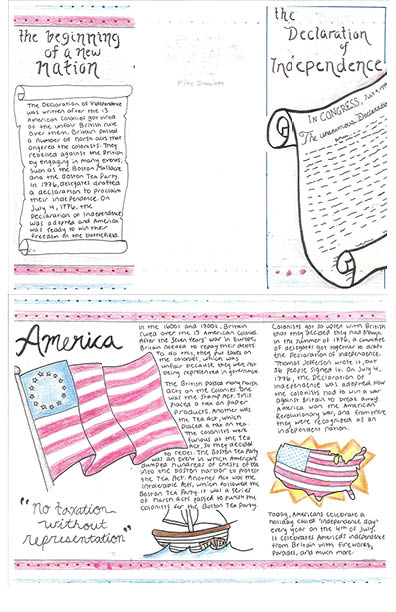 the beginning
of a new
Nation
The Declaration of Independence
was written after the 13
American Colonies got tired
of the unfair British rule
over them. Britain passed
a number of harsh acts that
angered the colonists. They
rebelled against the British
by engaging in many events,
such as the Boston Massacre
and the Boston Tea Party.
In 1776, delegates drafted
a declaration to proclaim
their independence. On
July 4, 1776, the
Declaration of Independence
was adopted and America
was ready to win their
freedom in the battlefield.
the
Declaration
of
Independence
IN CONGRESS, JULY 4, 
The unanimous Declaration
America
"No taxation
without
representation"
In the 1600s and 1700s, Britain
ruled over the 13 American Colonies.
After the Seven Years' War in Europe,
Britain needed to repay their debts.
To do this, they put taxes on
the colonies, which was
unfair because they were not
being represented in
The British passed many harsh
acts on the colonies. One
was the Stamp Act. This
placed a tax on paper
products. Another was
the Tea Act, which
placed a tax on tea.
The colonists were
furious at the Tea
Act, so they decided
to rebel. The Boston Tea Party
was an event in which Americans
dumped hundreds of chests of tea
into the Boston Harbor to protest
the Tea Act. Another Act was the
Intolerable Acts, which followed the
Boston Tea Party. It was a series
of harsh acts passed to punish the
colonists for the Boston Tea Party.
Colonists got so upset with British
that they decided they had
In the summer of 1776, a committee
of delegates got together to draft
the Declaration of Independence.
Thomas Jefferson wrote it, but
56 people signed it. On July 4,
1776, the Declaration of
Independence was adopted. Now
the colonists had to win a war
against Britain to break away.
America won the American
Revolutionary War, and from there
they were recognized as an
independent nation.
Today, Americans celebrate a
holiday called "Independence Day"
every year on the 4th of July.
It celebrates America's independence
from Britain with fireworks,
parades, and much more.